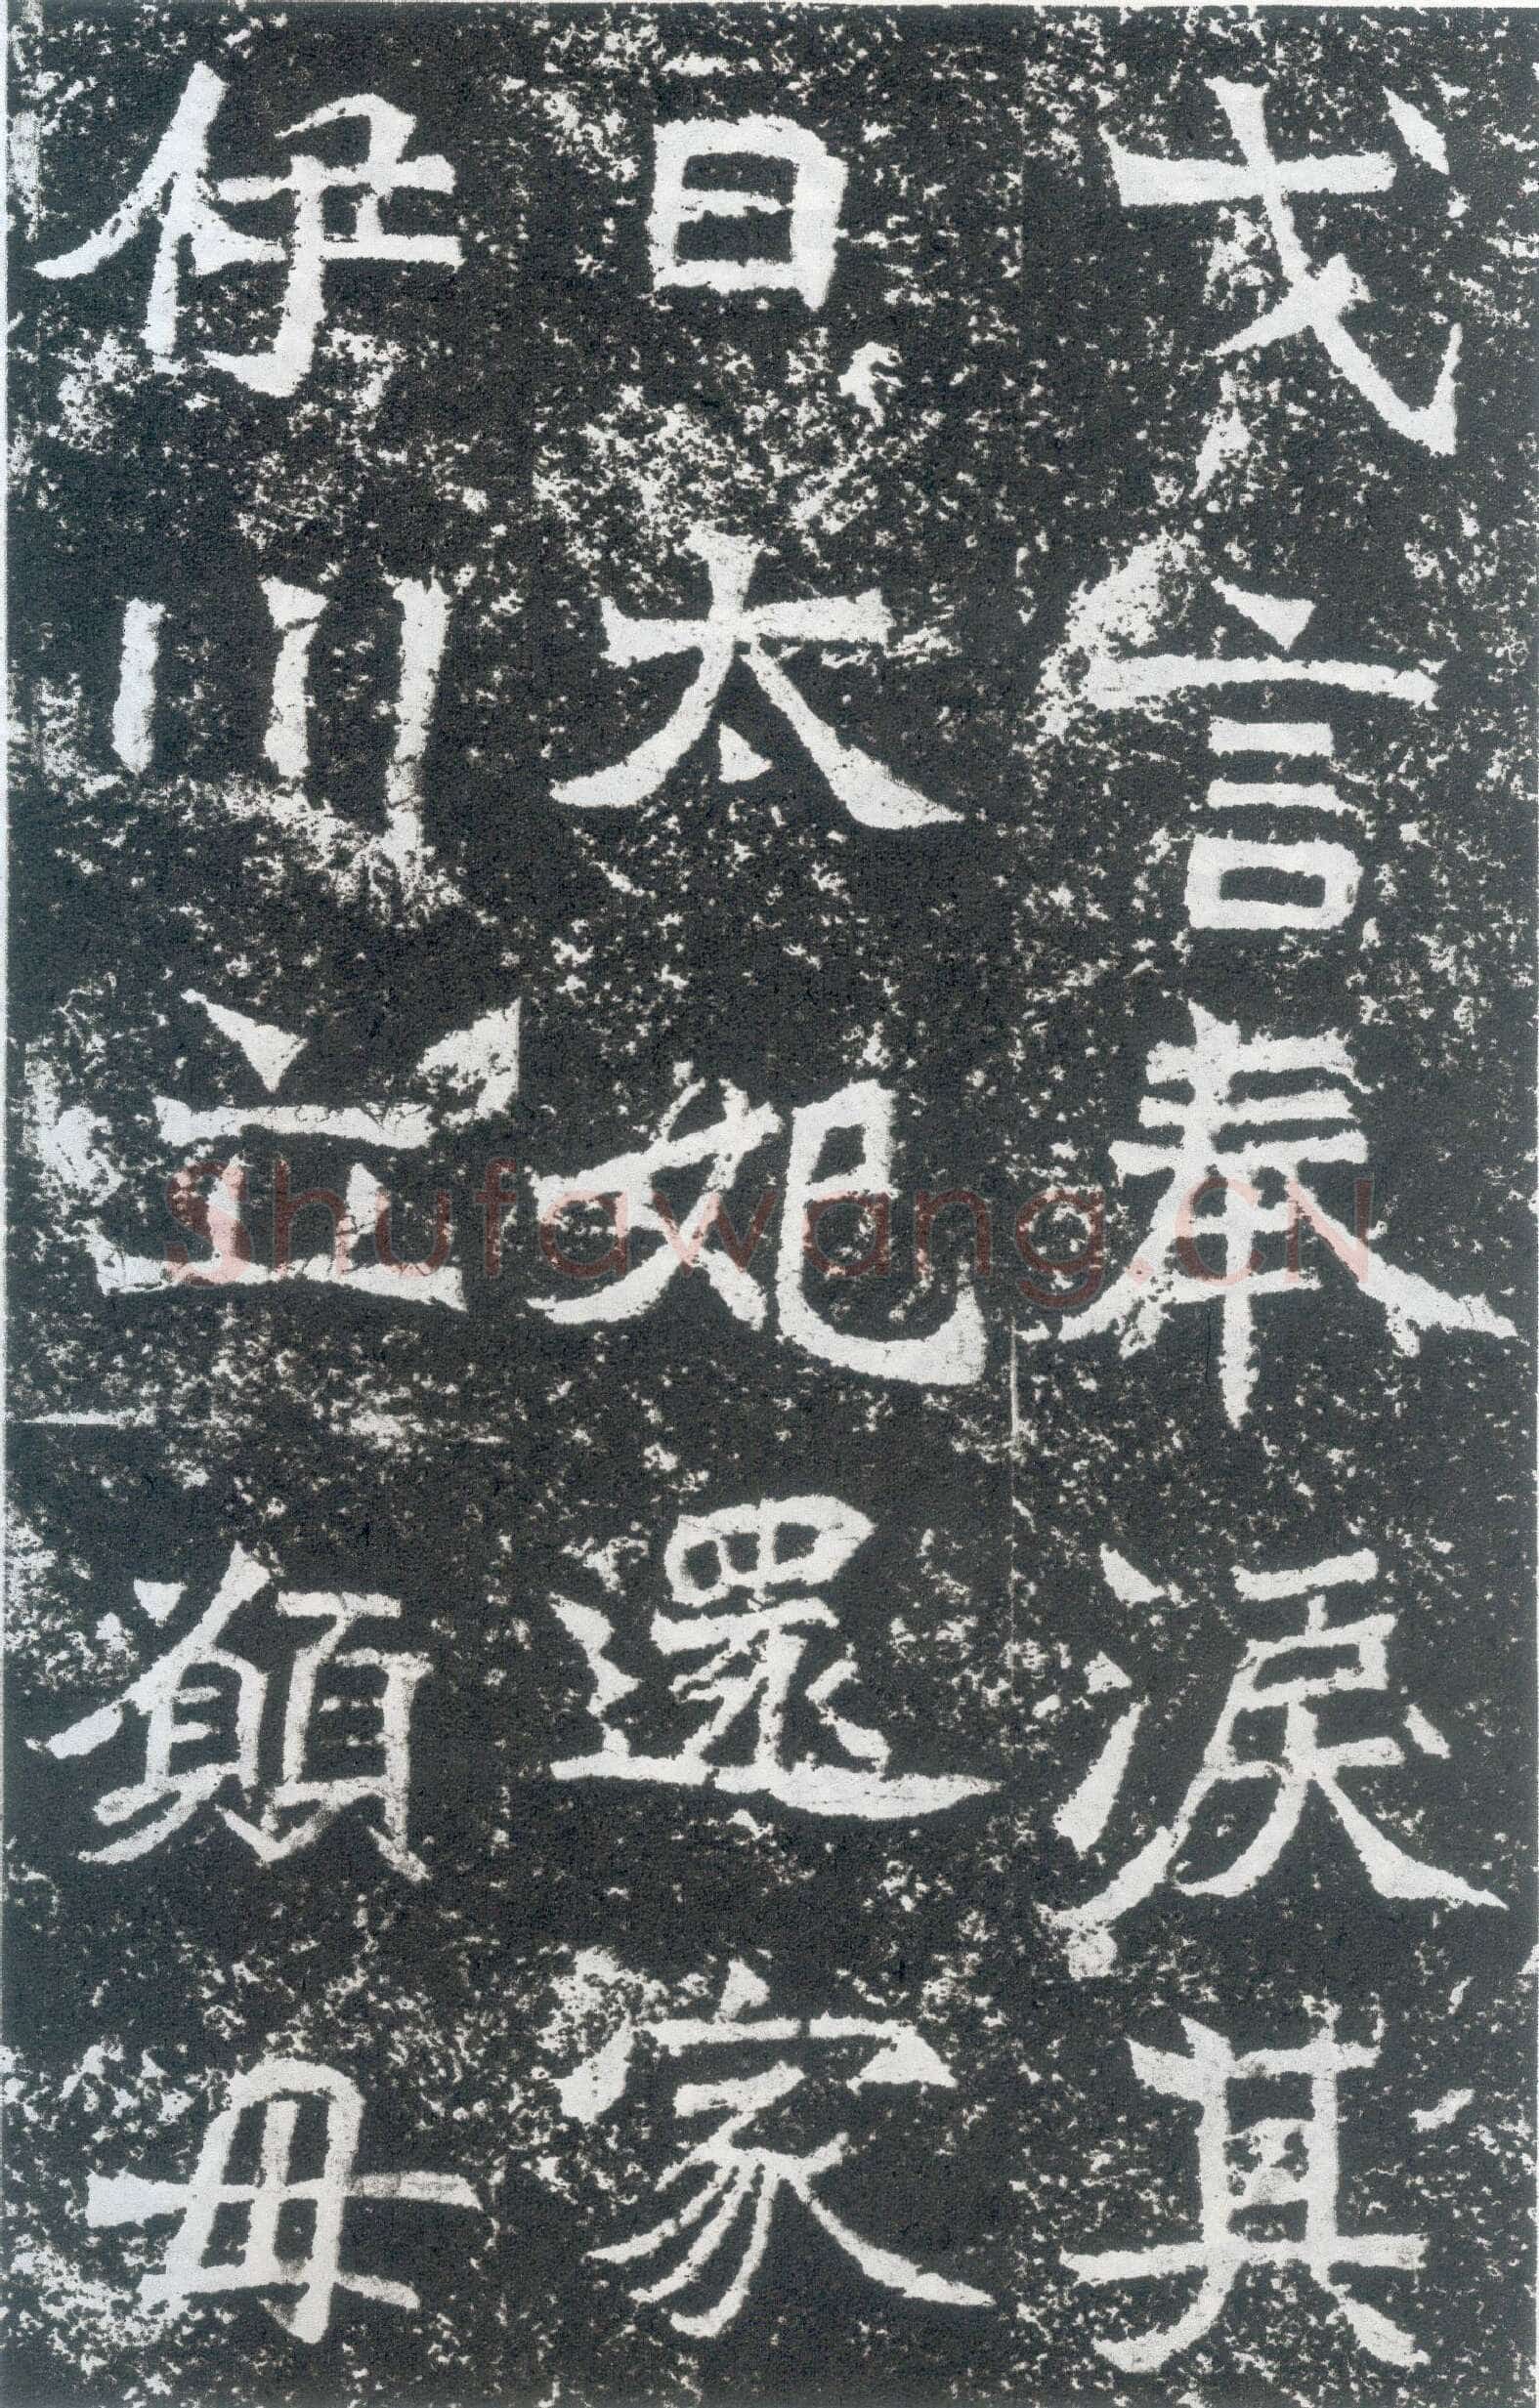 戈言奉淚其
日太妃還家
伊川立願母
Shufawang.CN